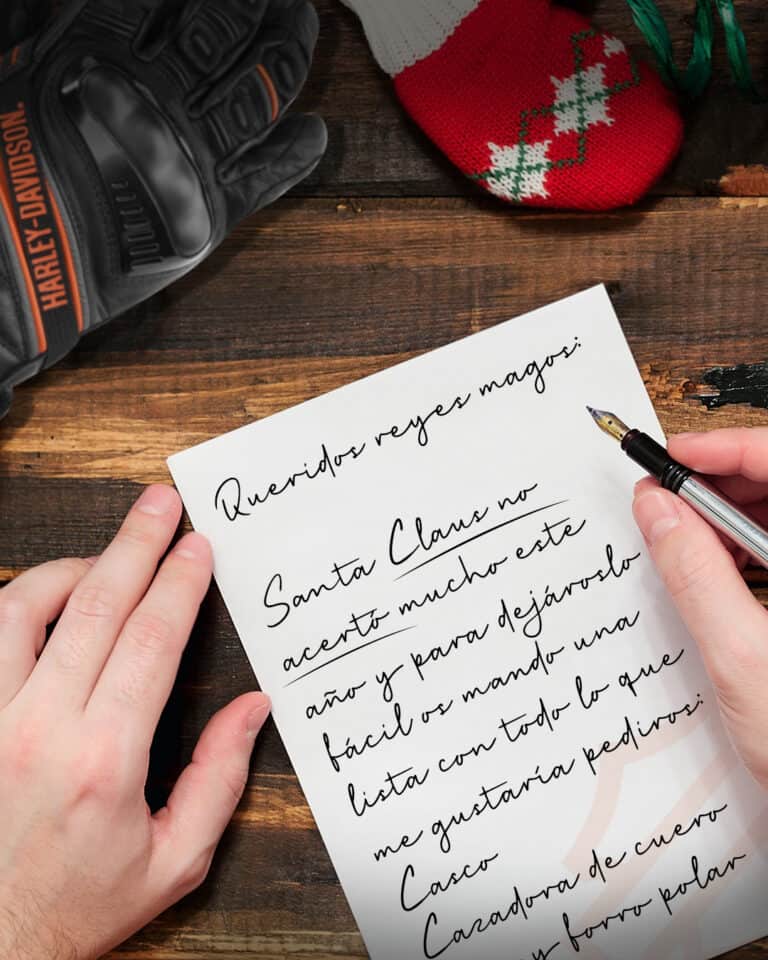 HARLEY-DAVIDSON.
Queridos reyes magos:
Santa Claus no
acertó mucho este
año y para dejároslo
fácil os mando una
lista con todo lo que
me gustaría pediros:
Casco
Cazadora de cuero
y forro polar